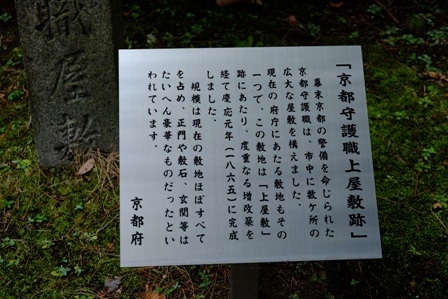 「京都守護職上屋敷跡」
幕末京都の警備を命じられた
京都守護職は、市中に数ケ所の
広大な屋敷を構えました。
現在の府庁にあたる敷地もその
一つで、この敷地は「上屋敷」
跡にあたり、度重なる増改築を
経て慶応元年(一八六五)に完成
しました。
規模は現在の敷地ほぼすべて
を占め、正門や敷石、玄関等は
たいへん豪華なものだったとい
われています。
京都府
職屋敷